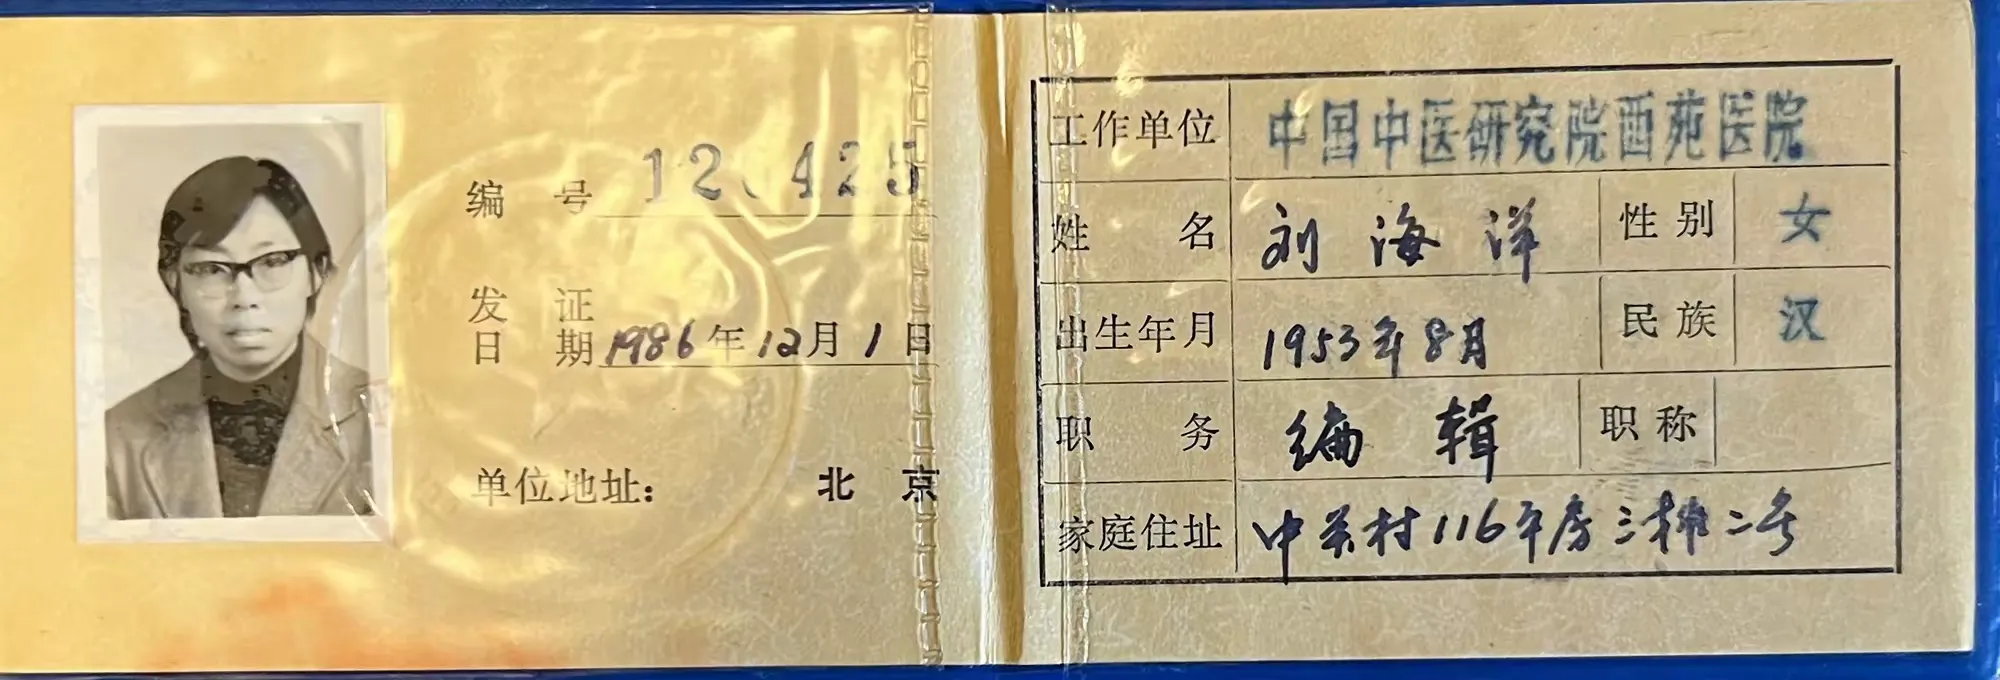 编号
发证日期 1986年12月1日
单位地址: 北京
工作单位 中国中医研究院西苑医院
姓名 刘海洋 性别 女
出生年月 1953年8月 民族 汉
职务 编辑 职称
家庭住址 中关村116平房三排二号